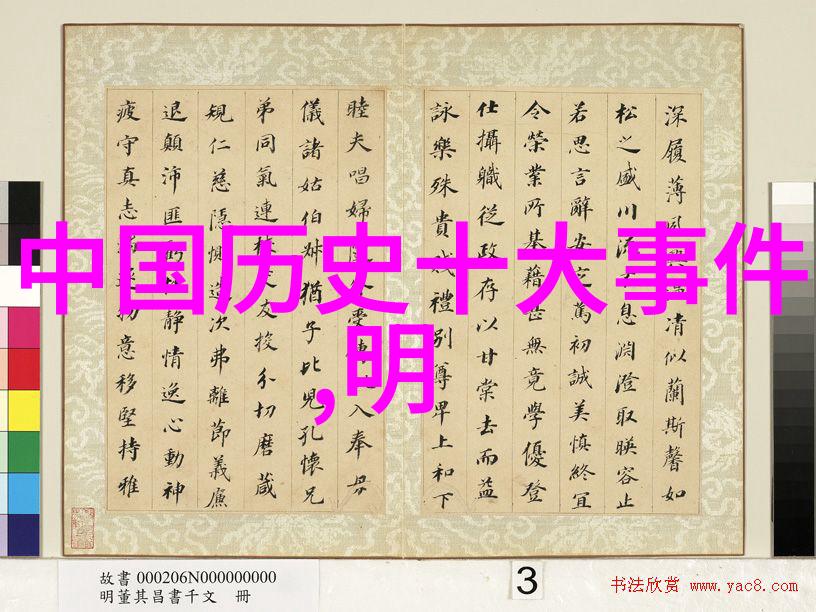 中国历史十大事件
,明
深履薄夙興清似蘭斯馨如
松之盛川流息淵澄取暎容止
若思言辭安定篤初誠美慎終宜
令榮業所基藉甚無竟學優登
仕攝職從政存以甘棠去而益
詠樂殊貴賤禮別尊卑上和下
睦夫唱婦受入奉母
儀諸姑伯叔猶子比兒孔懷兄
弟同氣連枝交友投分切磨箴
規仁慈隱惻造次弗離節義廉
退顛沛匪虧靜情逸心動神
疲守真志滿逐物意移堅持雅
故書 000206N000000000
明董其昌書千文 冊
3
书法欣赏 www.yac8.com